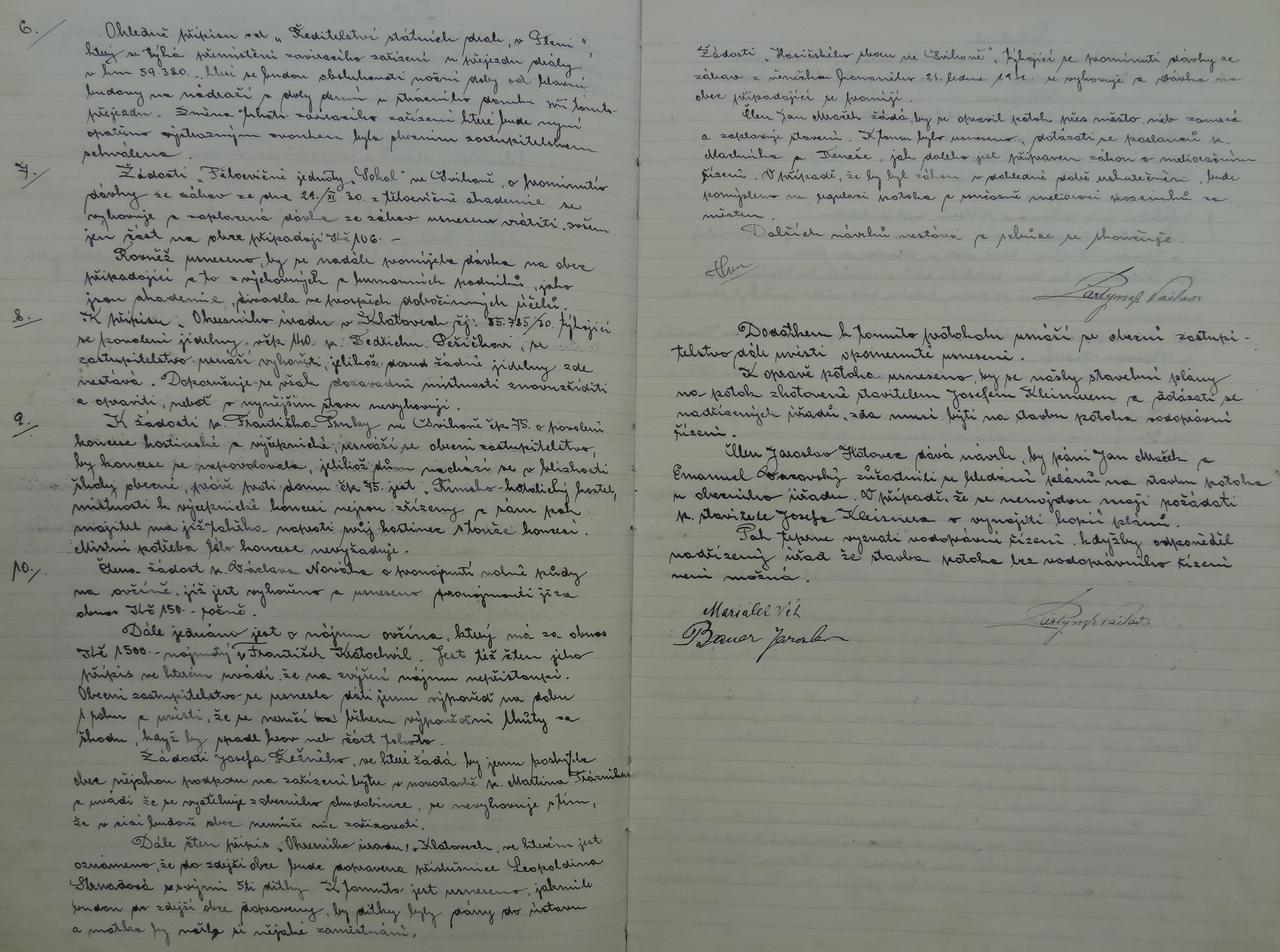 6./
Ohledně přípisu od „Ředitelství státních drah, v Plzni",
který se týká přemístění zavíracího zařízení u přejezdu dráhy
v km 59.380., které se budou obsluhovati noční doby od hlavní
budovy na nádraží a doby denní u strážního domku při tomto
přejezdu. Změna tohoto zavíracího zařízení které bude nyní
opatřeno výstražným zvonkem byla obecním zastupitelstvem
schválena.
7./
Žádosti „Tělocvičné jednoty „Sokol" ve Švihově, o prominutí
dávky ze zábav ze dne 29./III. 30. z tělocvičné akademie se
vyhovuje a zaplacená dávka ze zábav usneseno vrátiti, ovšem
jen část na obec připadající Kč 106.-
Rovněž usneseno, by se nadále promíjela dávka na obec
připadající a to z výchovných a humanních podniků, jako
jsou akademie, divadla ve prospěch dobročinných účelů.
8./
K přípisu „Okresního úřadu v Klatovech čj: 35.785/30. týkající
se povolení jídelny v čp. 140. p. Bedřichu Pešičkovi, se
zastupitelstvo usnáší vyhověti, jelikož dosud žádné jídelny zde
nestává. Doporučuje se však dozavadní místnosti znovuzříditi
a opraviti, neboť v nynějším stavu nevyhovují.
9./
K žádosti p. Františka Prusky ve Švihově čp. 75. o povolení
koncese hostinské a výčepnické, usnáší se obecní zastupitelstvo,
by koncese se nepovolovala, jelikož dům nachází se v blízkosti
školy obecné, právě proti domu čp. 75. jest „Římsko-katolický kostel,
místnosti k výčepnické koncesi nejsou zřízeny a sám pan
majitel má již poblíže naproti svůj hostinec s touže koncesí.
Místní potřeba této koncese nevyžaduje.
10./
Čtena žádost p. Václava Nováka o pronájmutí volné půdy
na ovčíně, jíž jest vyhověno a usneseno pronajmouti ji za
obnos Kč 150.- ročně.
Dále jednáno jest o nájmu ovčína, který má za obnos
Kč 1500.- najmutý František Krátochvíl. Jest též čten jeho
přípis ve kterém uvádí, že na zvýšení nájmu nepřistoupí.
Obecní zastupitelstvo se usneslo dáti jemu výpověď na dobu
1 roku a uvésti, že se neručí během výpovědní lhůty za
škodu, když by spadl krov neb část tohoto.
Žádosti Josefa Řežného, ve které žádá by jemu poskytla
obec nějakou podporu na zařízení bytu v novostavbě p. Martina Trázníka
a uvádí že se vystěhuje z obecního chudobince, se nevyhovuje s tím,
že v cizí budově obec nemůže nic zařizovati.
Dále čten přípis „Okresního úřadu v Klatovech, ve kterém jest
oznámeno, že do zdejší obce bude dopravena příslušnice Leopoldina
Strnadová se svými 5ti dítky. K tomuto jest usneseno, jakmile
budou do zdejší obce dopraveny, by dítky byly dány do ústavu
a matka by našla si nějaké zaměstnání.
Žádosti „Hasičského sboru ve Švihově", týkající se prominutí dávky ze
zábav z věnečku konaného 24. ledna 1931. se vyhovuje a dávka na
obec připadající se promíjí.
Člen Jan Maček žádá, by se opravil potok přes město, neb zamrzá
a zaplavuje stavení. K tomu bylo usneseno, dotázati se poslanců p.
Machníka a Beneše, jak daleko jest připraven zákon o melioračním
řízení. V případě, že by byl zákon v dohledné době uskutečněn, bude
pomýšleno na regulaci potoka a současně melioraci pozemků za
městem.
Dalších návrhů nestává a schůze se skončuje.
Partyngl Václav
Dodatkem k tomuto protokolu usnáší se obecní zastupi-
telstvo dále uvésti opomenuté usnesení.
K opravě potoka usneseno, by se našly stavební plány
na potok zhotovené stavitelem Josefem Kleisnerem a dotázati se
nadřízených úřadů, zda musí býti na stavbu potoka vodoprávní
řízení.
Člen Jaroslav Hůtovec dává návrh, by páni Jan Maček a
Emanuel Vozovský zúčastnili se hledání plánů na stavbu potoka
u obecního úřadu. V případě, že se nenajdou mají požádati
p. stavitele Josefa Kleisnera o vynajití kopií plánů.
Pak teprve vyzvati vodoprávní řízení. Kdyžby odpověděl
nadřízený úřad že stavba potoka bez vodoprávního řízení
není možná.
Maršálek Vít
Partyngl Václav
Bauer Jaroslav